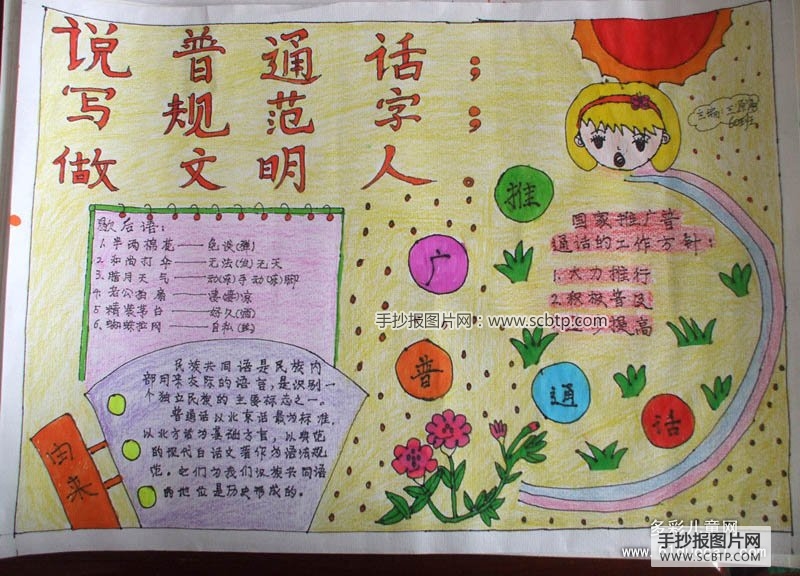 说普通话；
写规范字；
做文明人。
歇后语：
1. 半两棉花——免谈(弹)
2. 和尚打伞——无法(发)无天
3. 腊月天气——动(冻)手动(冻)脚
4. 老公拍扇——凄凄凉
5. 精装茅台——好久(酒)
6. 蜘蛛拉网——自私(丝)
民族共同语是民族内
部用来交际的语言，是识别一
个独立民族的主要标志之一。
普通话以北京话最为标准，
以北方话为基础方言，以典范
的现代白话文著作为语法规
范。它们为我们汉族共同语
的地位是历史形成的。
由来
推
广
普
通
话
国家推广普
通话的工作方针：
1. 大力推行
2. 积极普及
提高
手抄报图片网：www.scbtp.com
多彩儿童网
手抄报图片网
WWW.SCBTP.COM